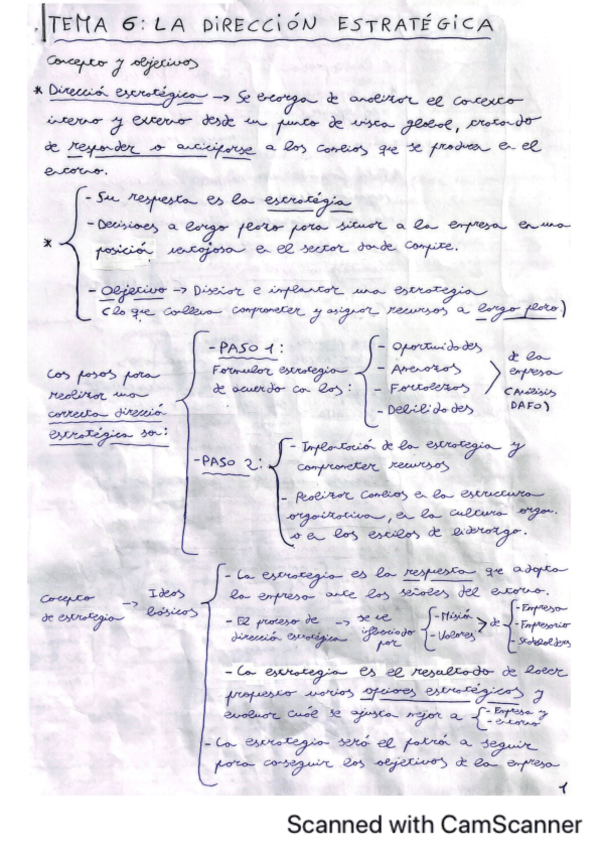 TEMA 6: LA DIRECCIÓN ESTRATÉGICA
Concepto y objetivos
* Dirección estratégica → Se encarga de analizar el contexto
interno y externo desde un punto de vista global, tratando
de responder o anticiparse a los cambios que se producen en el
entorno.
- Su respuesta es la estratégia
* - Decisiones a largo plazo para situar a la empresa en una
posición ventajosa en el sector donde compite.
- Objetivo → Diseñar e implantar una estrategia
(lo que conlleva comprometer y asignar recursos a largo plazo)
Los pasos para
realizar una
correcta dirección
estratégica son:
- PASO 1:
Formular estrategia
de acuerdo con los:
- Oportunidades
- Amenazas
- Fortalezas
- Debilidades
de la
empresa
(Análisis
DAFO)
- PASO 2:
- Implantación de la estrategia y
comprometer recursos
- Realizar cambios en la estructura
organizativa, en la cultura organ.
o en los estilos de liderazgo.
Concepto
de estrategia → Ideas
básicas
- La estrategia es la respuesta que adopta
la empresa ante las señales del entorno.
- El proceso de
dirección estratégica → se ve
influenciado
por
- Misión
- Valores
de
- Empresa
- Empresario
- Stakeholders
- La estrategia es el resultado de haber
propuesto varias opciones estratégicas y
evaluar cuál se ajusta mejor a - Empresa y
- entorno
- La estrategia será el patrón a seguir
para conseguir los objetivos de la empresa
1
Scanned with CamScanner